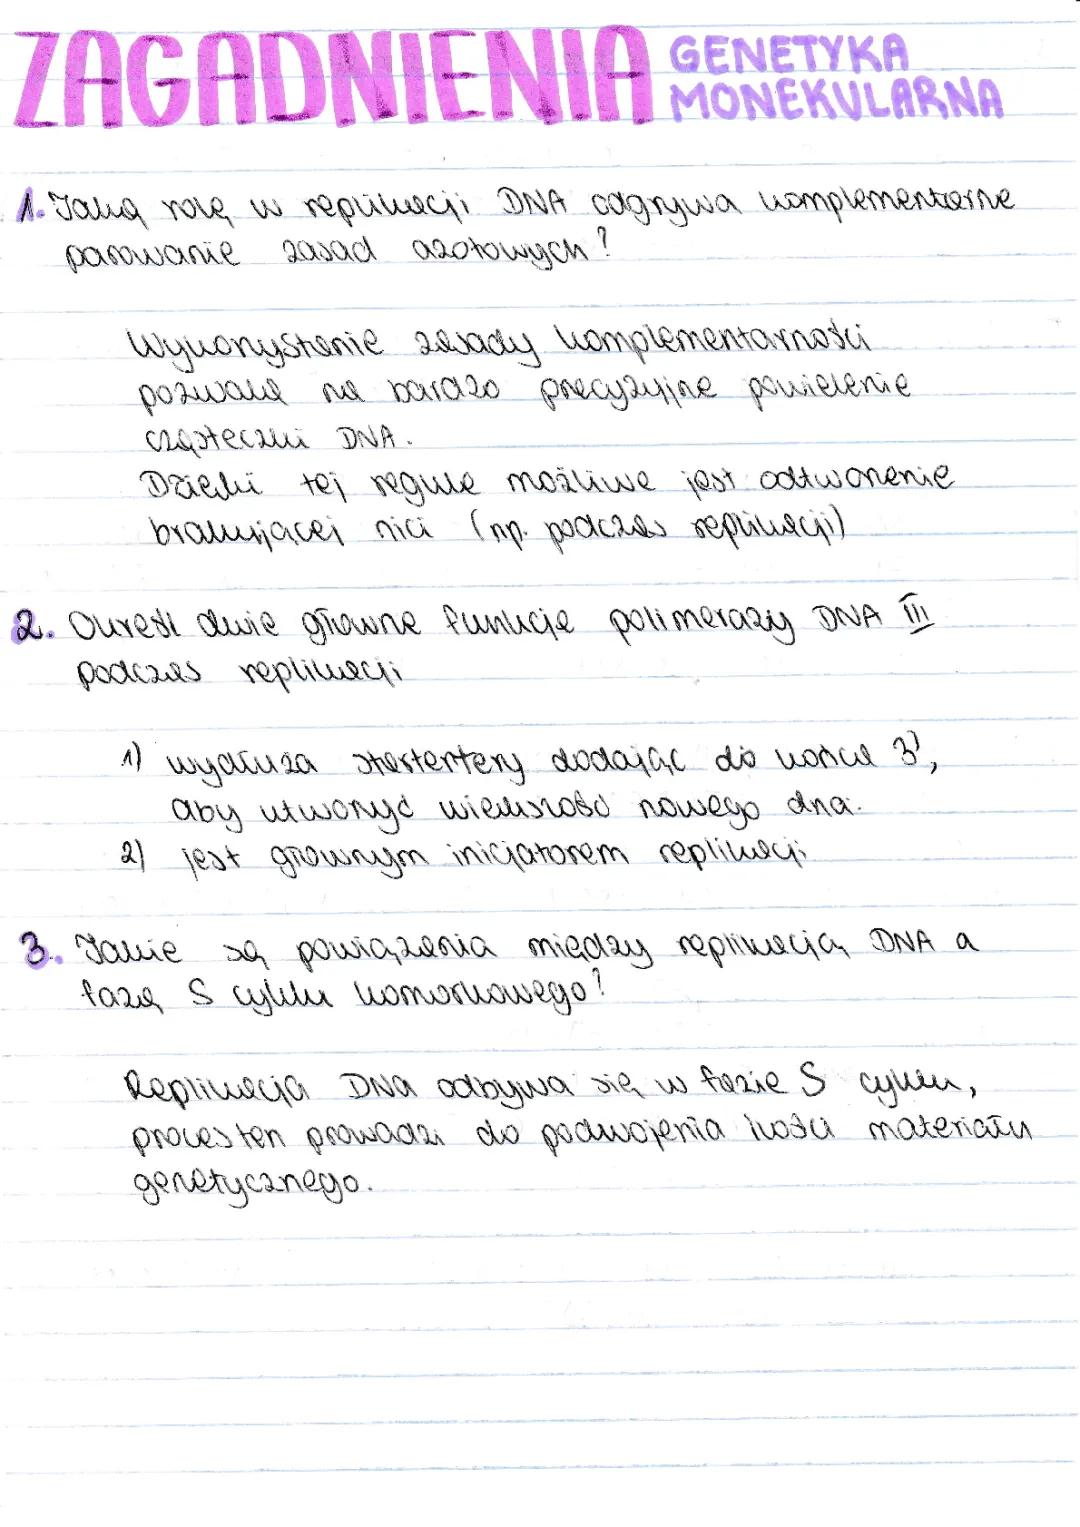 ZAGADNIENIA GENETYKA
MONEKULARNA
1. Jaką rolę w replikacji DNA odgrywa komplementarne
parowanie zasad azotowych?
Wykorzystanie zasady komplementarności
pozwala na bardzo precyzyjne powielenie
cząsteczki DNA.
Dzięki tej regule możliwe jest odtworzenie
brakującej nici (np. podczas replikacji)
2. Określ dwie główne funkcje polimerazy DNA III
podczas replikacji
1) wydłuża startertery dodając do końca 3',
aby utworzyć większość nowego dna.
2) jest głównym inicjatorem replikacji
3. Jakie są powiązania między replikacją DNA a
fazą S cyklu komórkowego?
Replikacja DNA odbywa się w fazie S cyklu,
proces ten prowadzi do podwojenia ilości materiału
genetycznego.